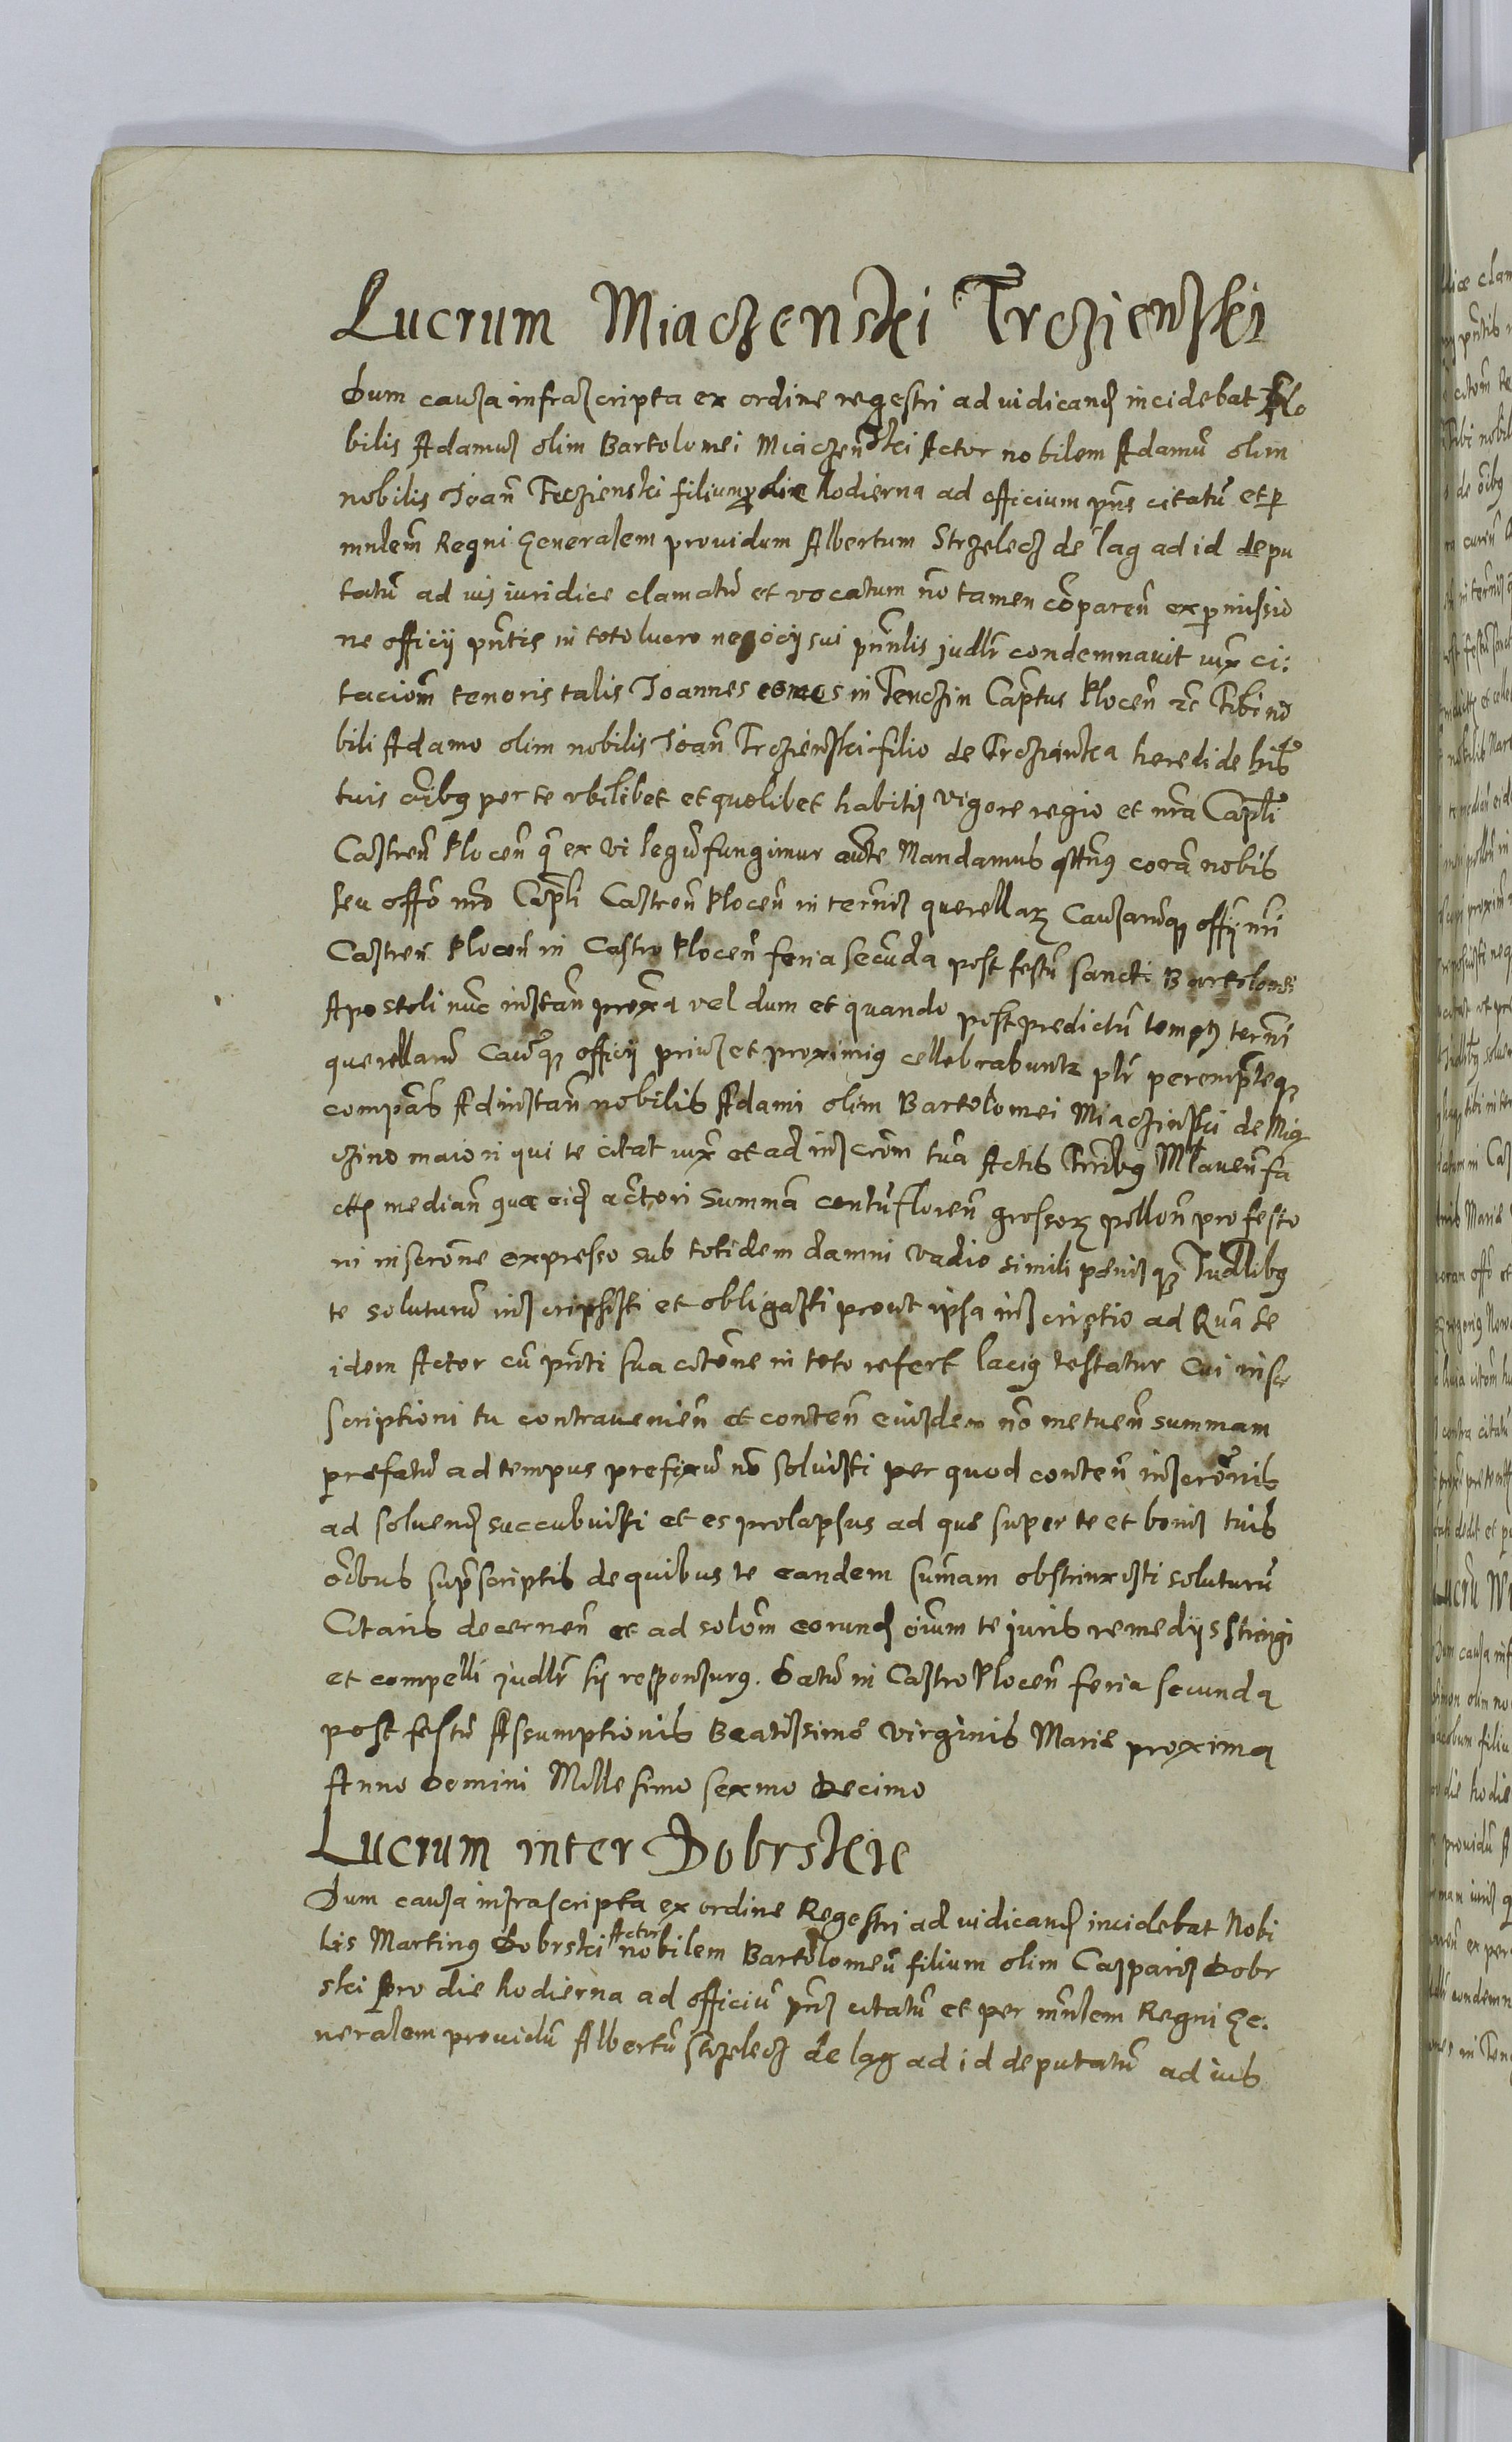 Lucrum Miaczenski Trczienski
Dum causa infrascripta ex ordine regestri ad vidicand incidebat No
bilis Adamus olim Bartolomei Miaczenski Actor nobilem Adamū olim
nobilis Joañ Trczienski filium pro die hodierna ad officium pñs citatū et per
mnlem Regni Generalem providum Albertum Strzelecz de lag ad id depu
tatū ad ius iuridice clamatū et vocatum nō tamen cōpareñ ex permissio
ne officij pñtis in toto lucro negocij sui pñnlis judlr condemnavit iux ci:
taciom tenoris talis Joannes comes in Tenczin Captus Ploceñ etc Tibi no
bili Adamo olim nobilis Joañ Trczienski filio de Trczianka heredi de bis
tuis oibus per te ubilibet et quolibet habitis vigore regio et nra Capli
Castreñ Ploceñ q ex vi legū fungimur aūte Mandamus qttūs corā nobis
seu offō nrō Capli Castreñ Ploceñ in termis querellar Causarūqz offij nri
Castreñ Ploceñ in Castro Ploceñ feria secūda post festū sancti Bartolomei
Apostoli nūc instañ proxa vel dum et quando post predictū tempus termi
querellarū Causqz officij prius et proximius cellebrabuntr plr peremptieqz
compas Ad instañ nobilis Adami olim Bartolomei Miaczinski de Mia
czino maiori qui te citat iux et ad inscrōm tuā Actis Trribus Mlaveñ fa
ctt mediañ qua eid actori summā centū floreñ grossor polloñ pro festo
in inscrōne expresso sub totidem damni vadio simili penisqz Judlibus
te soluturū inscripsisti et obligasti prout ipsa inscriptio ad Quā se
idem Actor cū pñti sua citōne in toto refert lacius testatur Cui insc
scriptioni tu contravenieñ et conteñ eiusdem nō metueñ summam
prefatū ad tempus prefixū nō solvisti per quod conteñ inscrōnis
ad solvend succubuisti et es prolapsus ad que super te et bonis tuis
oibus suprscriptis de quibus te eandem sumam obstrinxisti soluturū
Citaris decerneñ et ad solōm eorund oium te juris remedijs stringi
et compelli judlr sis responsurus. Datū in Castro Ploceñ feria secunda
post festū Assumptionis Beatissime Virginis Marie proxima
Anno Domini Millesimo sexmo decimo
Lucrum inter Dobrskie
Dum causa infrascripta ex ordine Regestri ad vidicand incidebat Nobi
lis Martinus Dobrski Actor nobilem Bartolomeū filium olim Casparis Dobr
ski pro die hodierna ad officiū pñs citatū et per mnlem Regni Ge.
neralem providū Albertū Strzelecz de lag ad id deputatū ad ius